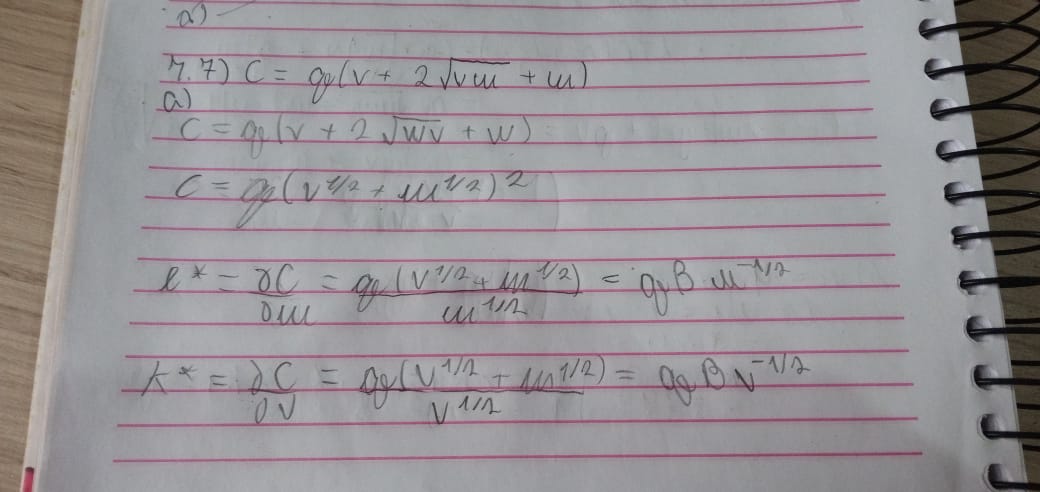 a)
7.7) C = q(v + 2√vw + w)
a)
C = q(v + 2√wv + w)
C = q(v^1/2 + w^1/2)^2
l* = ∂C/∂w = q(v^1/2 + w^1/2)/w^1/2 = qB·w^-1/2
k* = ∂C/∂v = q(v^1/2 + w^1/2)/v^1/2 = qB v^-1/2